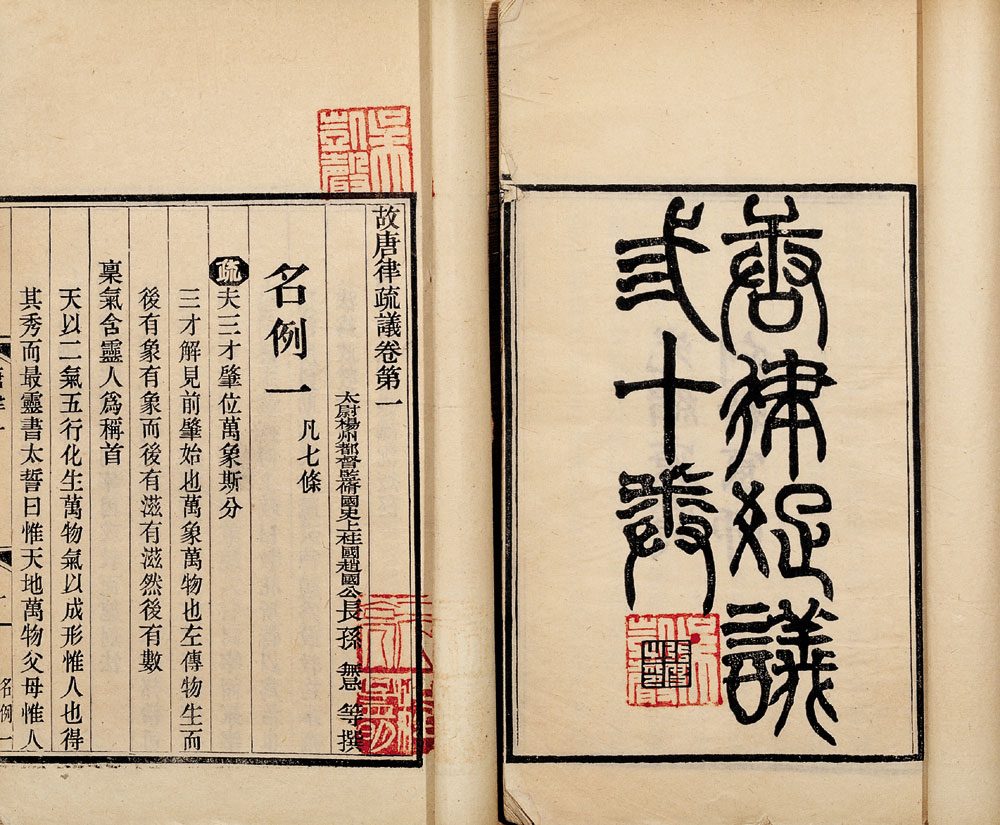 唐律疏議
弎十卷
吳凱聲
吳凱聲
故唐律疏議卷第一
太尉楊州都督監脩國史上柱國趙國公長孫無忌等撰
名例一 凡七條
疏夫三才肇位萬象斯分
三才解見前肇始也萬象萬物也左傳物生而
後有象有象而後有滋有滋然後有數
稟氣含靈人爲稱首
天以二氣五行化生萬物氣以成形惟人也得
其秀而最靈書太誓曰惟天地萬物父母惟人
名例一